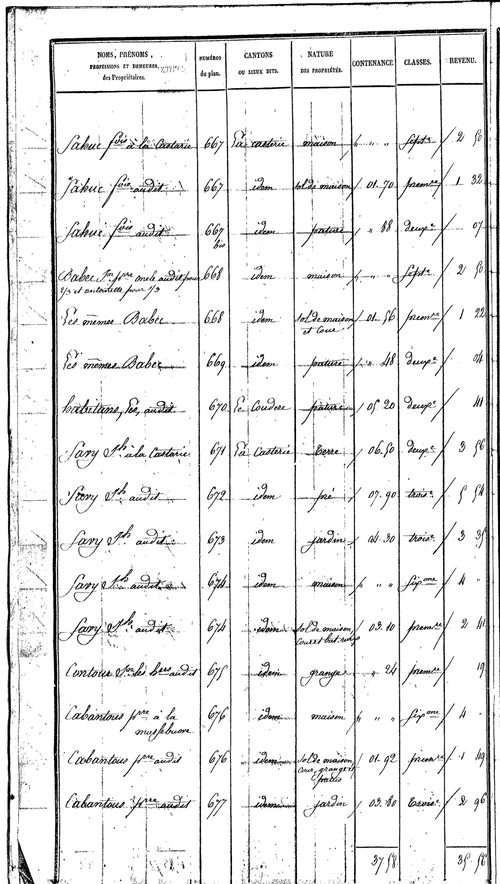 NOMS, PRÉNOMS, PROFESSIONS ET DEMEURES, des Propriétaires. NUMÉROS du plan. CANTONS OU LIEUX DITS. NATURE DES PROPRIÉTÉS. CONTENANCE CLASSES. REVENU.
Sahuc fois à la Casterie 667 La casterie maison " " " Sept.e 2 50
Sahuc fois audit 667 idem sol de maison 01.70 prem.re 1 32
Sahuc fois audit 667 bis idem pature " 88 deux.e 07
Babec audit pour 668 idem maison " " " Sept.e 2 50
2/3 et pour 1/3
Les mêmes Babec 668 idem sol de maison et Cour 01.56 prem.re 1 22
Les mêmes Babec 669 idem pature " 48 deux.e 04
habitans, les, audit 670 Le Couderc pature 05 20 deux.e 41
Savy Jh à la Casterie 671 La Casterie Terre 06.50 deux.e 3 56
Savy Jh audit 672 idem pré 07.90 trois.e 5 54
Savy Jh audit 673 idem jardin 04 30 trois.e 3 35
Savy Jh audit 674 idem maison " " " six.eme 4 "
Savy Jh audit 674 idem sol de maison 03.10 prem.re 2 41
Contour les h.ers audit 675 idem grange " 24 prem.re 19
Cabantous p.rre à la 676 idem maison " " " six.eme 4 "
Cabantous p.rre audit 676 idem sol de maison 01.92 prem.re 1 49
cour, grange et
Cabantous p.rre audit 677 idem jardin 03.80 Trois.e 2 96
37 58 35 56